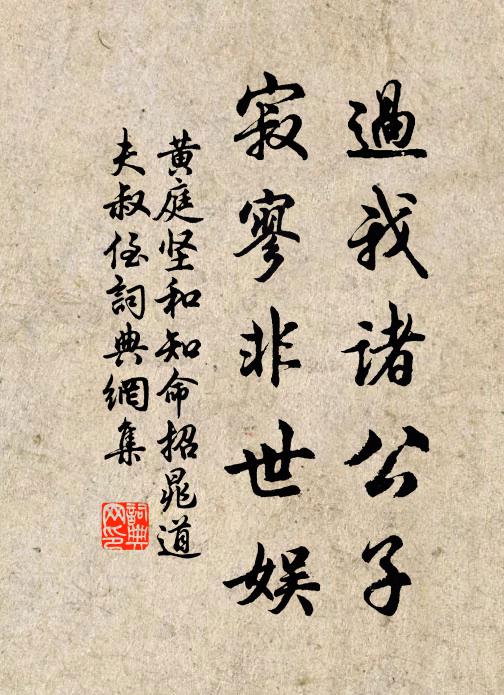 過我諸公子
寂寥非世娱
黄庭坚和知命招晁道
夫叔侄詞典網集
詞典網印